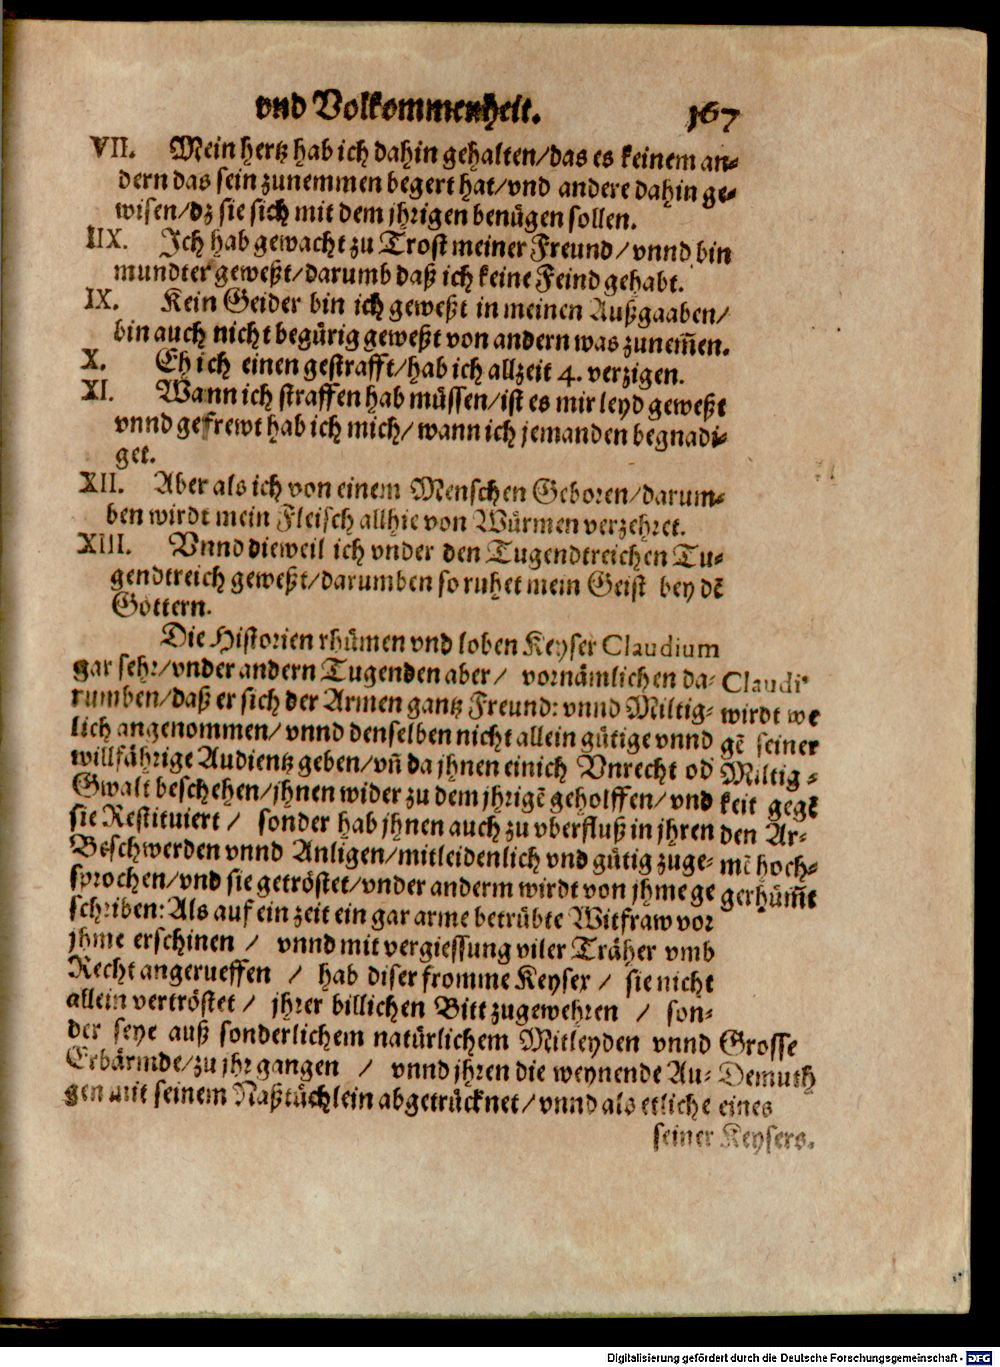 vnd Volkommenheit. 167
VII. Mein hertz hab ich dahin gehalten/das es keinem an-
dern das sein zunemmen begert hat/vnd andere dahin ge-
wisen/dz sie sich mit dem jhrigen benügen sollen.
IIX. Ich hab gewacht zu Trost meiner Freund/vnnd bin
mundter geweßt/darumb daß ich keine Feind gehabt.
IX. Kein Geider bin ich geweßt in meinen Außgaaben/
bin auch nicht begürig geweßt von andern was zunem̃en.
X. Eh ich einen gestrafft/hab ich allzeit 4. verzigen.
XI. Wann ich straffen hab müssen/ist es mir leyd geweßt
vnnd gefrewt hab ich mich/wann ich jemanden begnadi-
get.
XII. Aber als ich von einem Menschen Geboren/darum-
ben wirdt mein Fleisch allhie von Würmen verzehret.
XIII. Vnnd dieweil ich vnder den Tugendtreichen Tu-
gendtreich geweßt/darumben so ruhet mein Geist bey dẽ
Göttern.
Die Historien rhümen vnd loben Keyser Claudium
gar sehr/vnder andern Tugenden aber/ vornämlichen da-
rumben/daß er sich der Armen gantz Freund: vnnd Miltig-
lich angenommen/vnnd denselben nicht allein gütige vnnd
willfährige Audientz geben/vñ da jhnen einich Vnrecht od
Gwalt beschehen/jhnen wider zu dem jhrigẽ geholffen/vnd
sie Restituiert/ sonder hab jhnen auch zu vberfluß in jhren
Beschwerden vnnd Anligen/mitleidenlich vnd gütig zuge-
sprochen/vnd sie getröstet/vnder anderm wirdt von jhme ge
schriben: Als auf ein zeit ein gar arme betrübte Witfraw vor
jhme erschinen / vnnd mit vergiessung viler Träher vmb
Recht angerueffen / hab diser fromme Keyser / sie nicht
allein vertröstet / jhrer billichen Bitt zugewehren / son-
der seye auß sonderlichem natürlichem Mitleyden vnnd
Erbärmde/zu jhr gangen / vnnd jhren die weynende Au-
gen mit seinem Naßtüchlein abgetrücknet/vnnd als etliche
seiner
Claudi'
wirdt we
gẽ seiner
Miltig-
keit gegẽ
den Ar-
mẽ hoch-
gerhüm̃t
Grosse
Demuth
eines
Keysers.
Digitalisierung gefördert durch die Deutsche Forschungsgemeinschaft - DFG